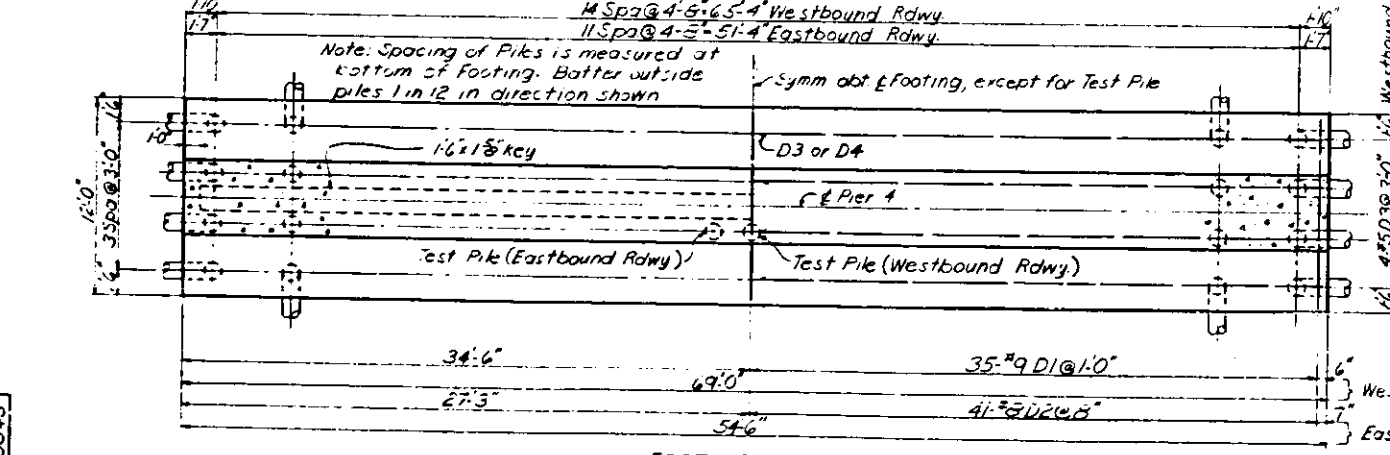 1'-10"
14 Spa@4'-8"=65'-4" Westbound Rdwy.
1'-10"
1'-7"
11 Spa@4'-8"=51'-4" Eastbound Rdwy.
1'-7"
Note: Spacing of Piles is measured at
bottom of Footing. Batter outside
piles 1 in 12 in direction shown
Symm abt ℄ Footing, except for Test Pile
Westbound
1'-6"
1'-0"
1'-6"x1⅝" key
D3 or D4
12'-0"
3 Spa@3'-0"
℄ Pier 4
1'-6"
Test Pile (Eastbound Rdwy)
Test Pile (Westbound Rdwy.)
1'-6"
34'-6"
35-#9 D1@1'-0"
6"
69'-0"
27'-3"
41-#8 D2@8"
7"
54'-6"